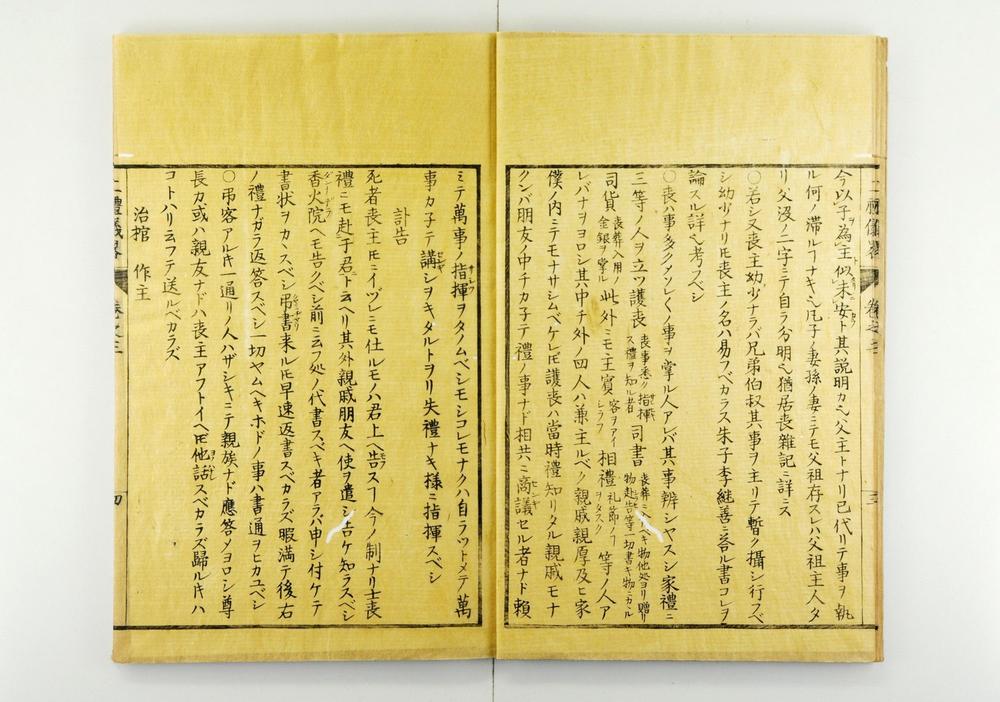 今以子為主似未安ト其説明カ也父主トナリ已代リテ事ヲ執
ル何ノ滞ルヿナキ也凡子ノ妻孫ノ妻ニテモ父祖存スレハ父祖主人タ
リ父没ノ二字ニテ自ラ分明也猶居喪雜記ニ詳ニス
○若シ又喪主幼少ナラバ兄弟伯叔其事ヲ主リテ暫ク攝シ行フベ
シ幼少ナリ𪜈喪主ノ名ハ易フベカラス朱子李継善ニ答ル書コレヲ
論スル詳也考スベシ
○喪ハ事多クメソレ〱ノ事ヲ掌ル人アレバ其事辨シヤスシ家禮ニ
三等ノ人ヲ立ツ護喪 喪事悉ク指揮ス禮ヲ知ル者 司書 喪葬ニ入ベキ物他処ヨリ贈リ物赴告等一切書キ物ニカヽル
司貨 喪葬入用ノ金銀ヲ掌ル 此外ニモ主賓 客ヲアイシラフ 相禮 礼節ノヿヲタスク 等ノ人ア
レバナヲヨロシ其中チ外ノ四人ハ兼主ルベク親戚親厚及ヒ家
僕ノ内ニテモナサシムベケレ𪜈護喪ハ當時禮知リタル親戚モナ
クンバ朋友ノ中チカ子テ禮ノ事ナド相共ニ商議セル者ナド頼
ミテ萬事ノ指揮ヲタノムベシモシコレモナクハ自ラツトメテ萬
事カ子テ講シヲキタルトヲリ失禮ナキ様ニ指揮スベシ
訃告
死者喪主𪜈ニイヅレニモ仕ルモノハ君上ヘ告スヿ今ノ制ナリ士喪
禮ニモ赴于君ニト云ヘリ其外親戚朋友ヘ使ヲ遣シ告ケ知ラスベシ
香火院ヘモ告クベシ前ニ云フ処ノ代書スベキ者アラバ申シ付ケテ
書状ヲカヽスベシ弔書来ル𪜈早速返書スベカラズ暇満テ後右
ノ禮ナカラ返答スベシ一切ヤムヘキホドノ事ハ書通ヲヒカユベシ
○弔客アルキ一通リノ人ハザシキニテ親族ナド應答ノヨロシ尊
長カ或ハ親友ナドハ喪主アフトイヘ𪜈他話スベカラズ歸ルキハ
コトハリ云フテ送ルベカラズ
治棺 作主
二禮儀略 巻之三
三
四